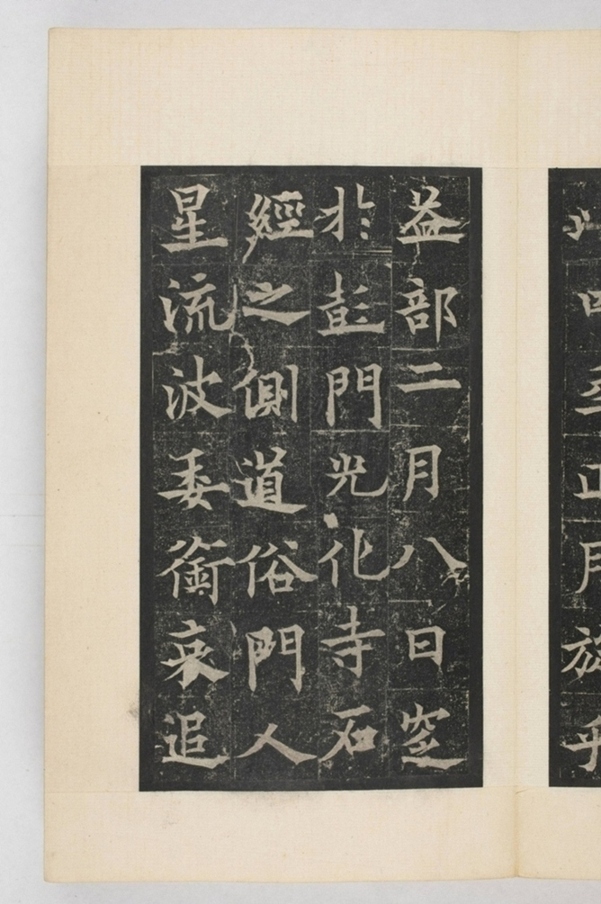 正月旋乎
益部二月八日窆
於彭門光化寺石
經之側道俗門人
星流波委銜哀追